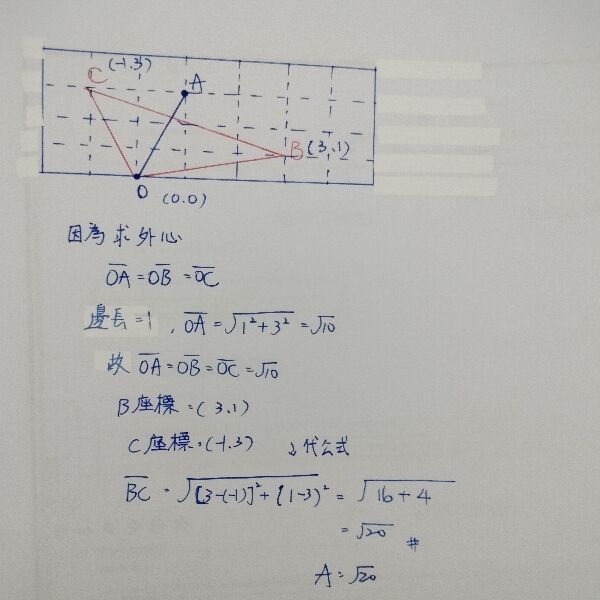 C (-1.3) A
B (3.1)
O (0.0)
因為求外心
OA = OB = OC
邊長=1, OA = √1²+3² = √10
故 OA = OB = OC = √10
B座標=(3.1)
C座標=(-1.3) ↓代公式
BC = √[3-(-1)]²+(1-3)² = √16+4
= √20 #
A=√20